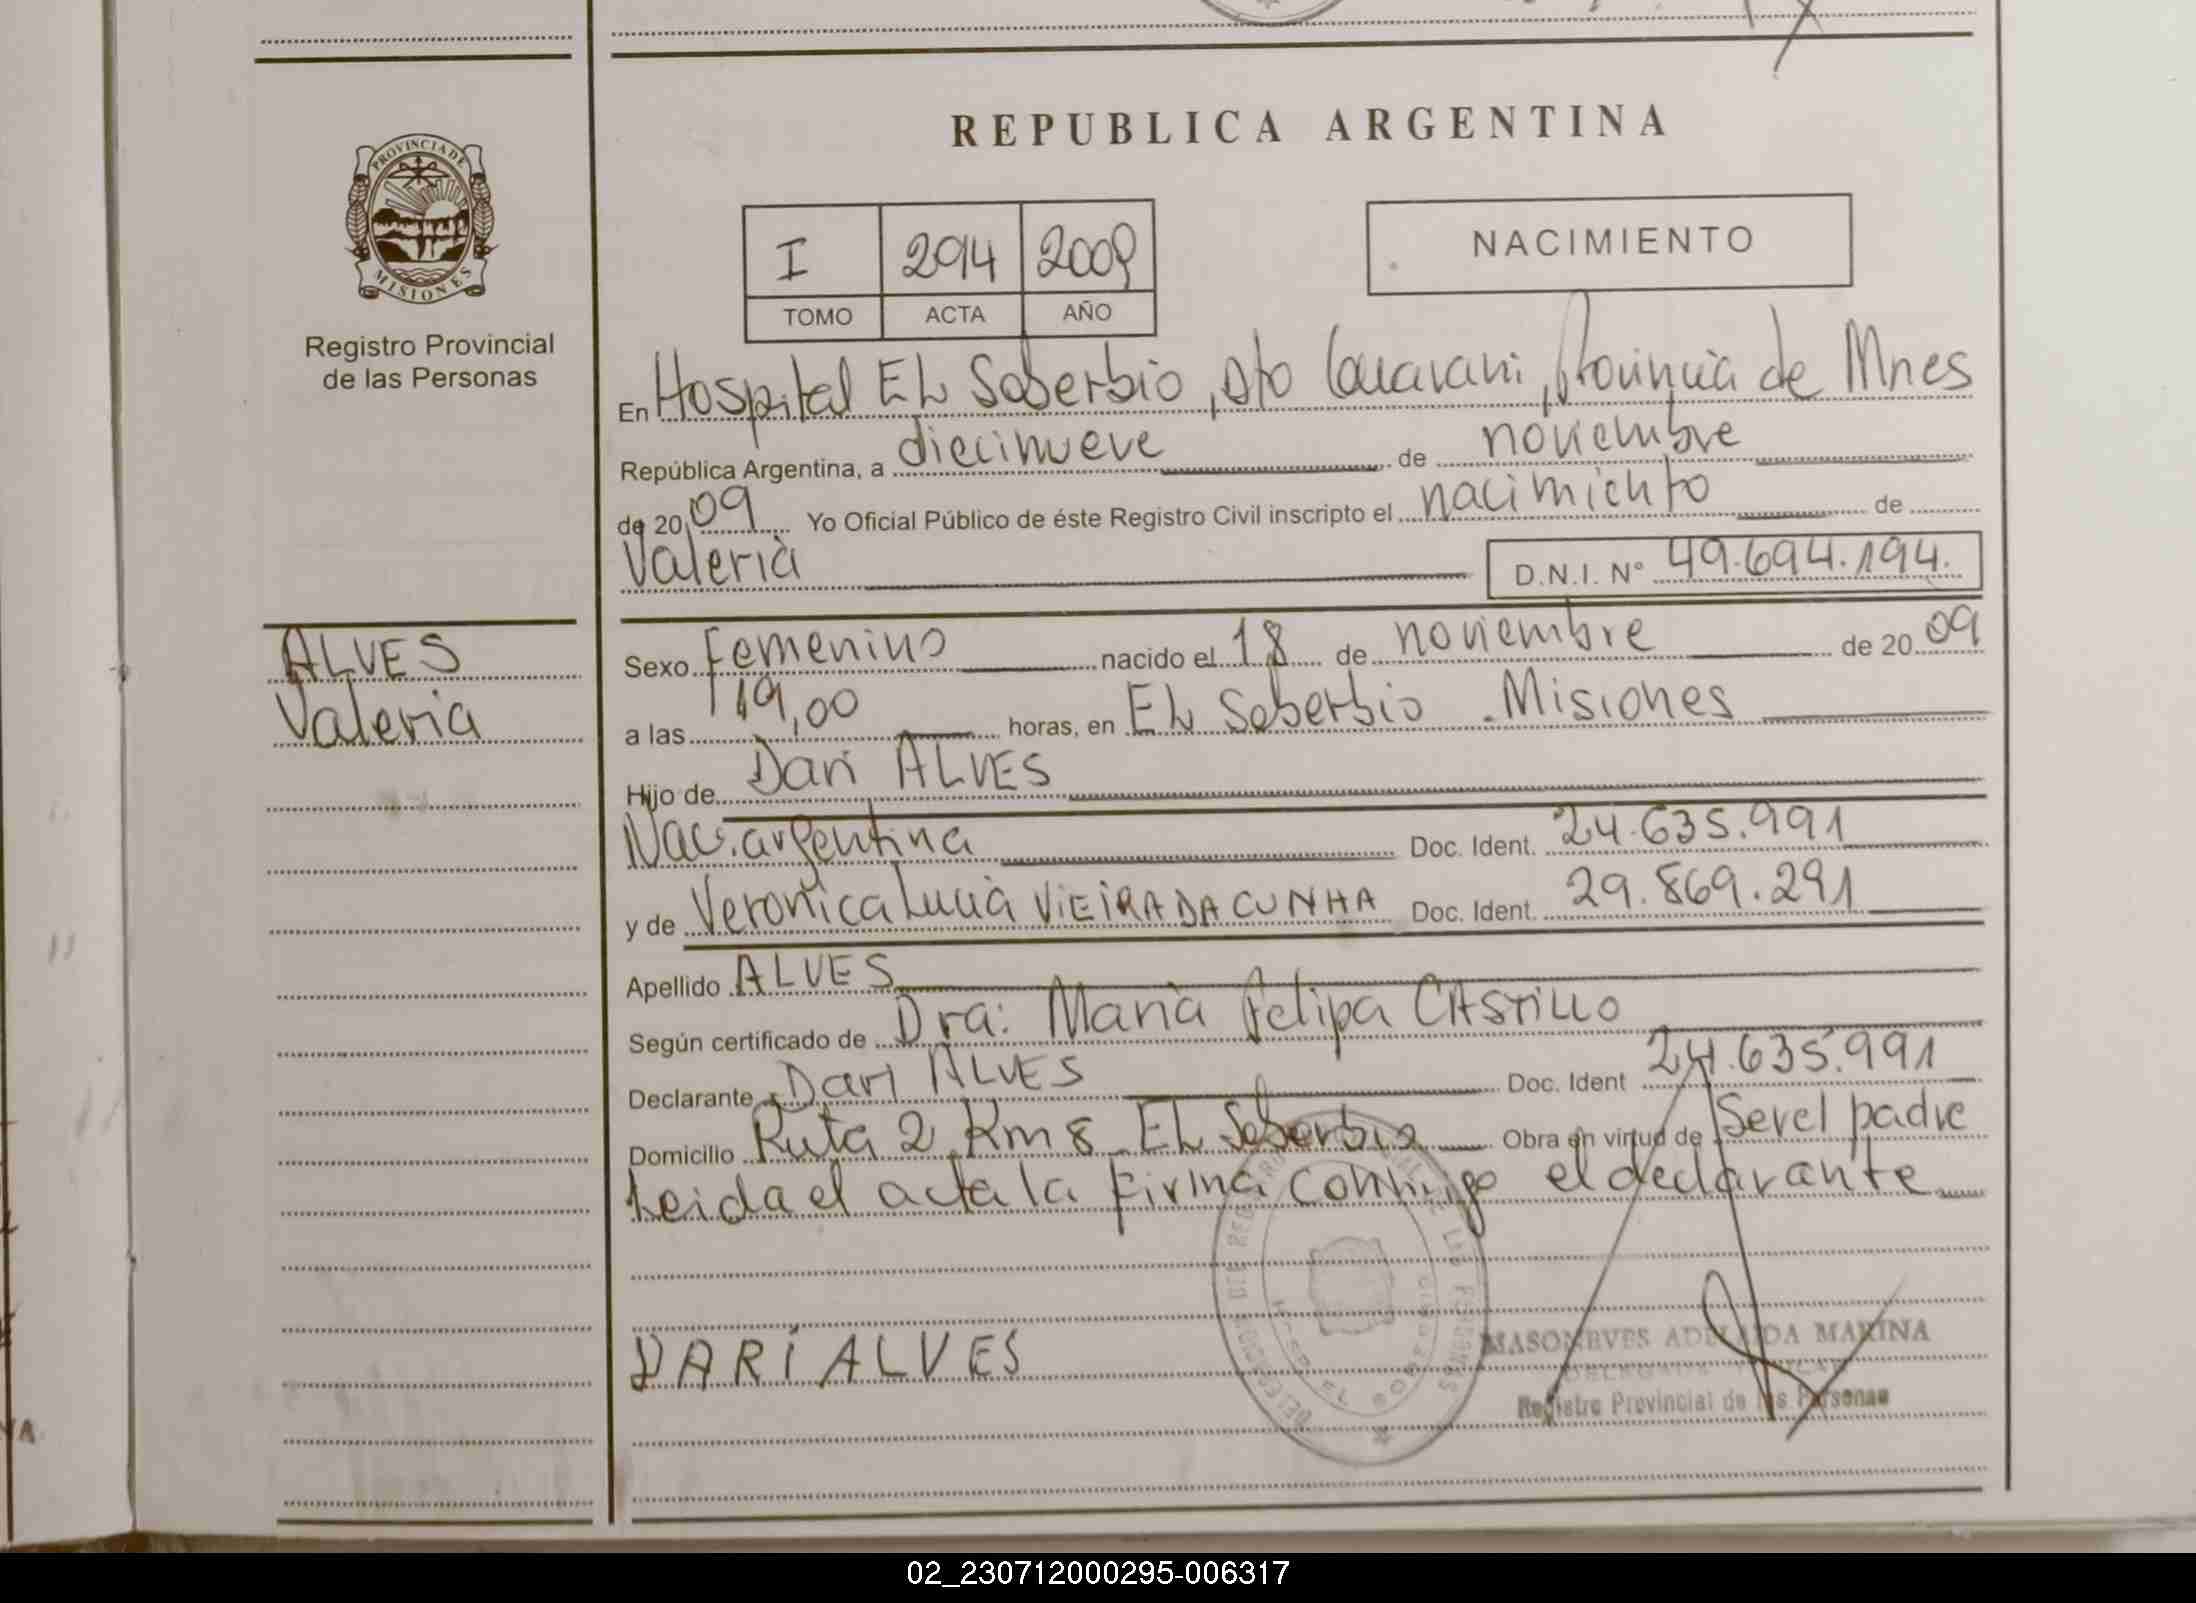 REPUBLICA ARGENTINA
PROVINCIA DE
MISIONES
Registro Provincial
de las Personas
I 294 2009
TOMO ACTA AÑO
NACIMIENTO
En Hospital EL Soberbio, Dto Guarani, Provincia de Mnes
República Argentina, a diecinueve de noviembre
de 2009 Yo Oficial Público de éste Registro Civil inscripto el nacimiento de
Valeria D.N.I. Nº 49.694.194.
ALVES
Valeria
Sexo Femenino nacido el 18 de noviembre de 2009
a las 19,00 horas, en EL Soberbio - Misiones
Hijo de Dari ALVES
Nac. argentina Doc. Ident. 24.635.991
y de Veronica Lucia VIEIRA DA CUNHA Doc. Ident. 29.869.291
Apellido ALVES
Según certificado de Dra: Maria Felipa CASTILLO
Declarante Dari ALVES Doc. Ident 24.635.991
Domicilio Ruta 2 Km 8 EL Soberbio Obra en virtud de Ser el padre
Leida el acta la firma conmigo el declarante
DARÍ ALVES
ADELAIDA MARINA
Registro Provincial de las Personas
02_230712000295-006317